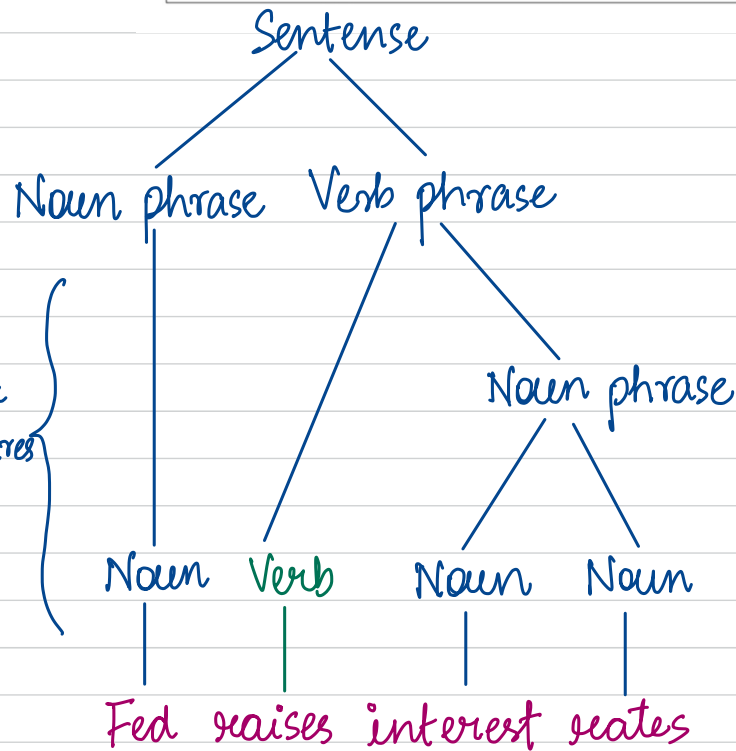 Sentense
Noun phrase Verb phrase
Noun phrase
Noun Verb Noun Noun
Fed raises interest rates